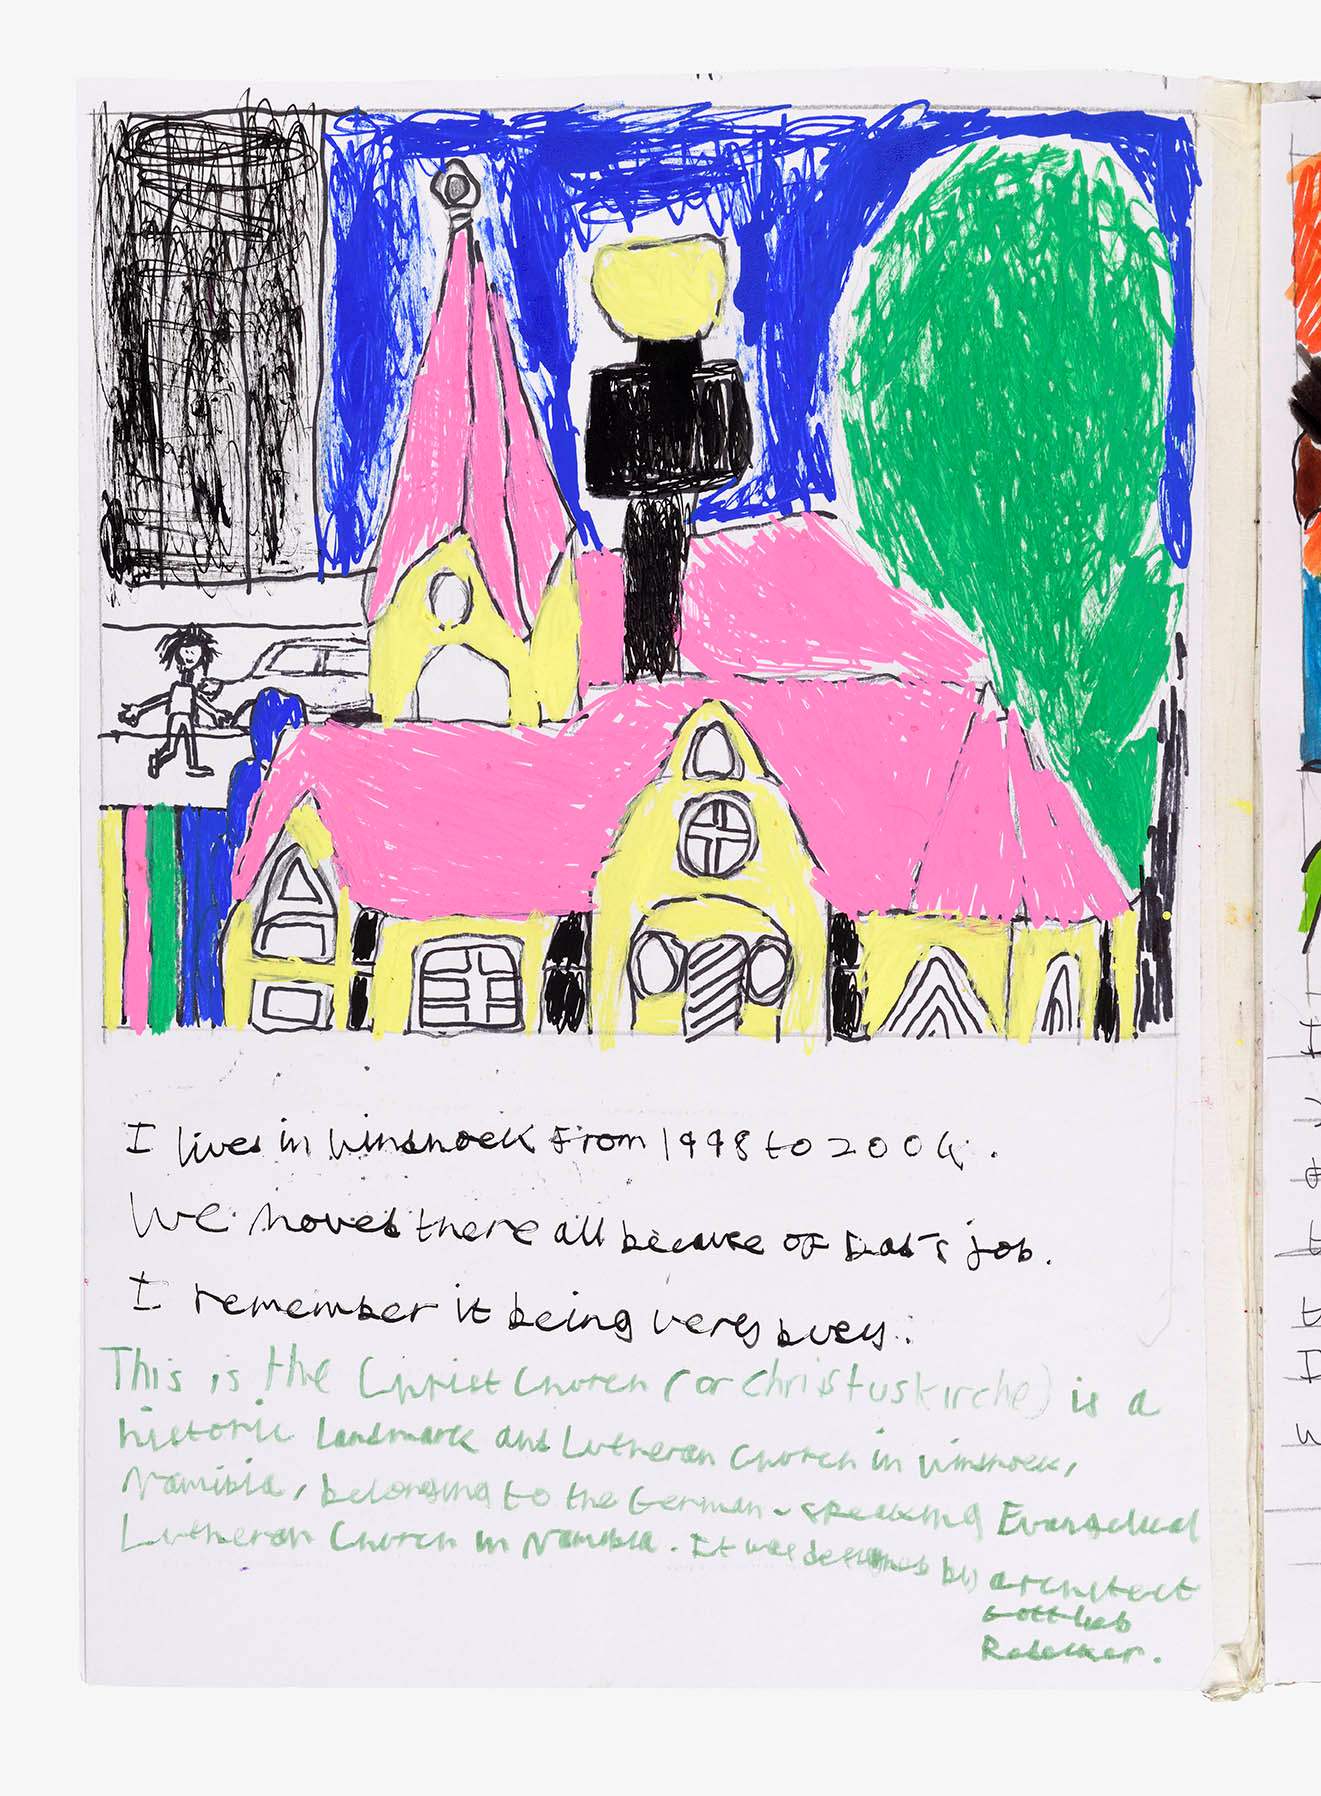 I lived in Windhoek from 1998 to 2004.
We moved there all because of Dad's job.
I remember it being very busy.
This is the Christ Church (or Christuskirche) is a
historic landmark and Lutheran Church in Windhoek,
Namibia, belonging to the German-speaking Evangelical
Lutheran Church in Namibia. It was designed by architect
Gottlieb
Redecker.